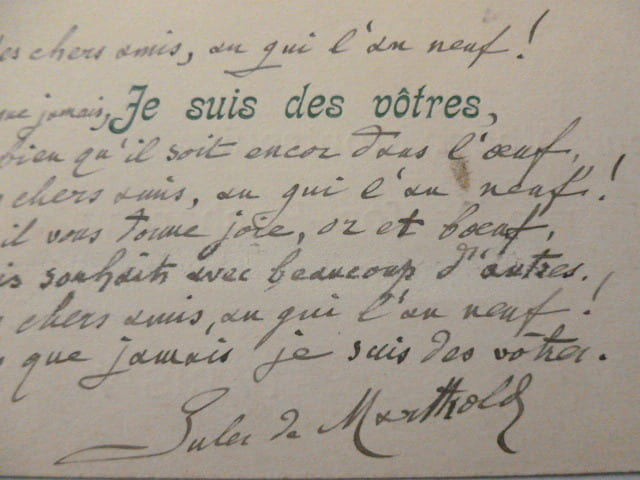 es chers amis, au gui l'an neuf!
que jamais, Je suis des vôtres,
bien qu'il soit encor dans l'œuf,
chers amis, au gui l'an neuf!
il vous donne joie, or et bœuf,
is souhaits avec beaucoup d'autres.
chers amis, au gui l'an neuf!
que jamais je suis des vôtres.
Jules de Marthold